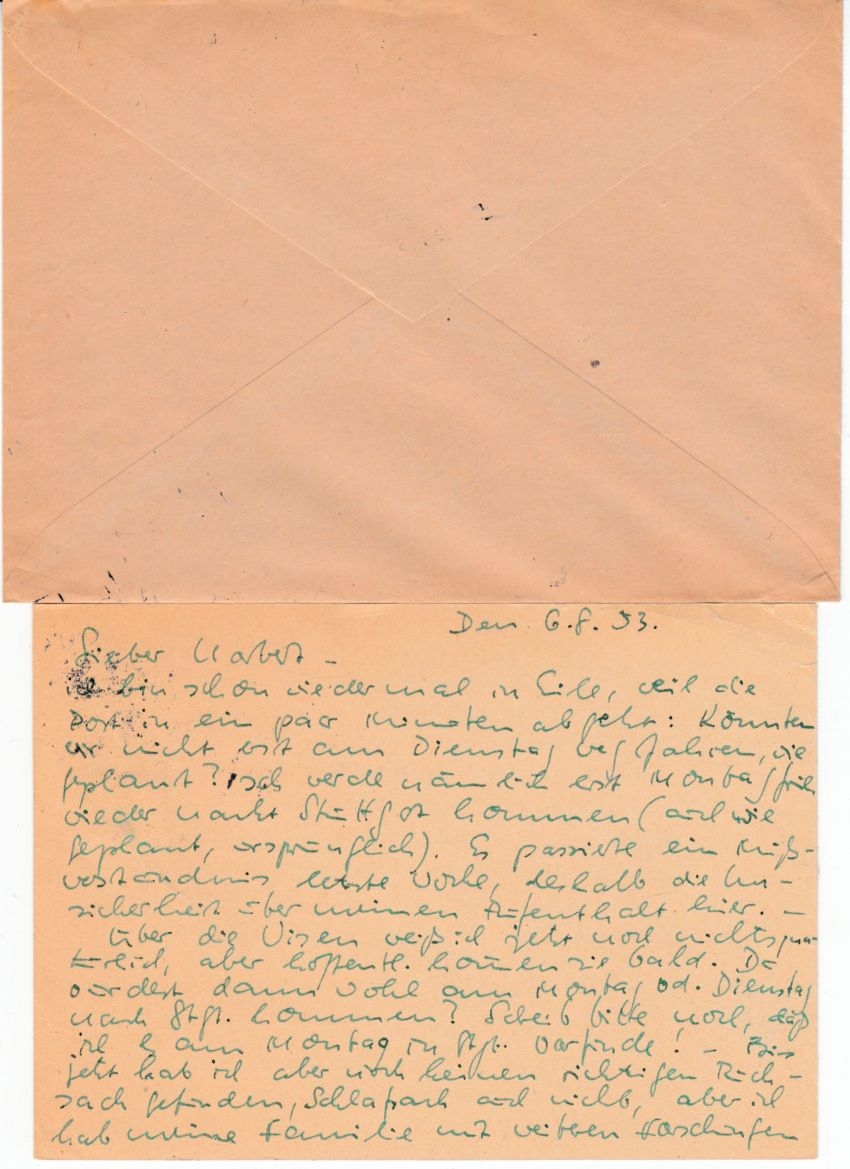 Den 6.8.53.
Lieber Norbert –
bin schon wieder mal in Eile, weil die
Post in ein paar Minuten abgeht: Könnten
wir nicht erst am Dienstag wegfahren, wie
geplant? Ich werde nämlich erst Montag früh
wieder nach Stuttgart kommen (auch wie
geplant, ursprünglich). Es passierte ein Miß-
verständnis letzte Woche, deshalb die Un-
sicherheit über meinen Aufenthalt hier. –
Über die Visen weiß ich jetzt noch nichts
aber hoffentl. kommen sie bald. Du
würdest dann wohl am Montag od. Dienstag
nach Stgt. kommen? Schreib bitte noch, daß
ich am Montag in Stgt. vorfinde! – Bis
jetzt hab ich aber noch keinen richtigen Ruck-
sack gefunden, Schlafsack auch nicht, aber ich
hab meine Familie mit weiteren Forschungen